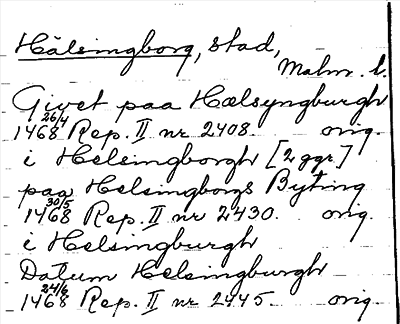 Hälsingborg, stad,
Malm. l.
Givet paa Hælsyngburgh
1468 26/4 Rep. II nr 2408. orig.
i Helsingborgh [2 ggr]
paa Helsingborgs Byting
1468 30/5 Rep. II nr 2430. orig.
i Helsingburgh
Datum Helsingburgh
1468 24/6 Rep. II nr 2445. orig.